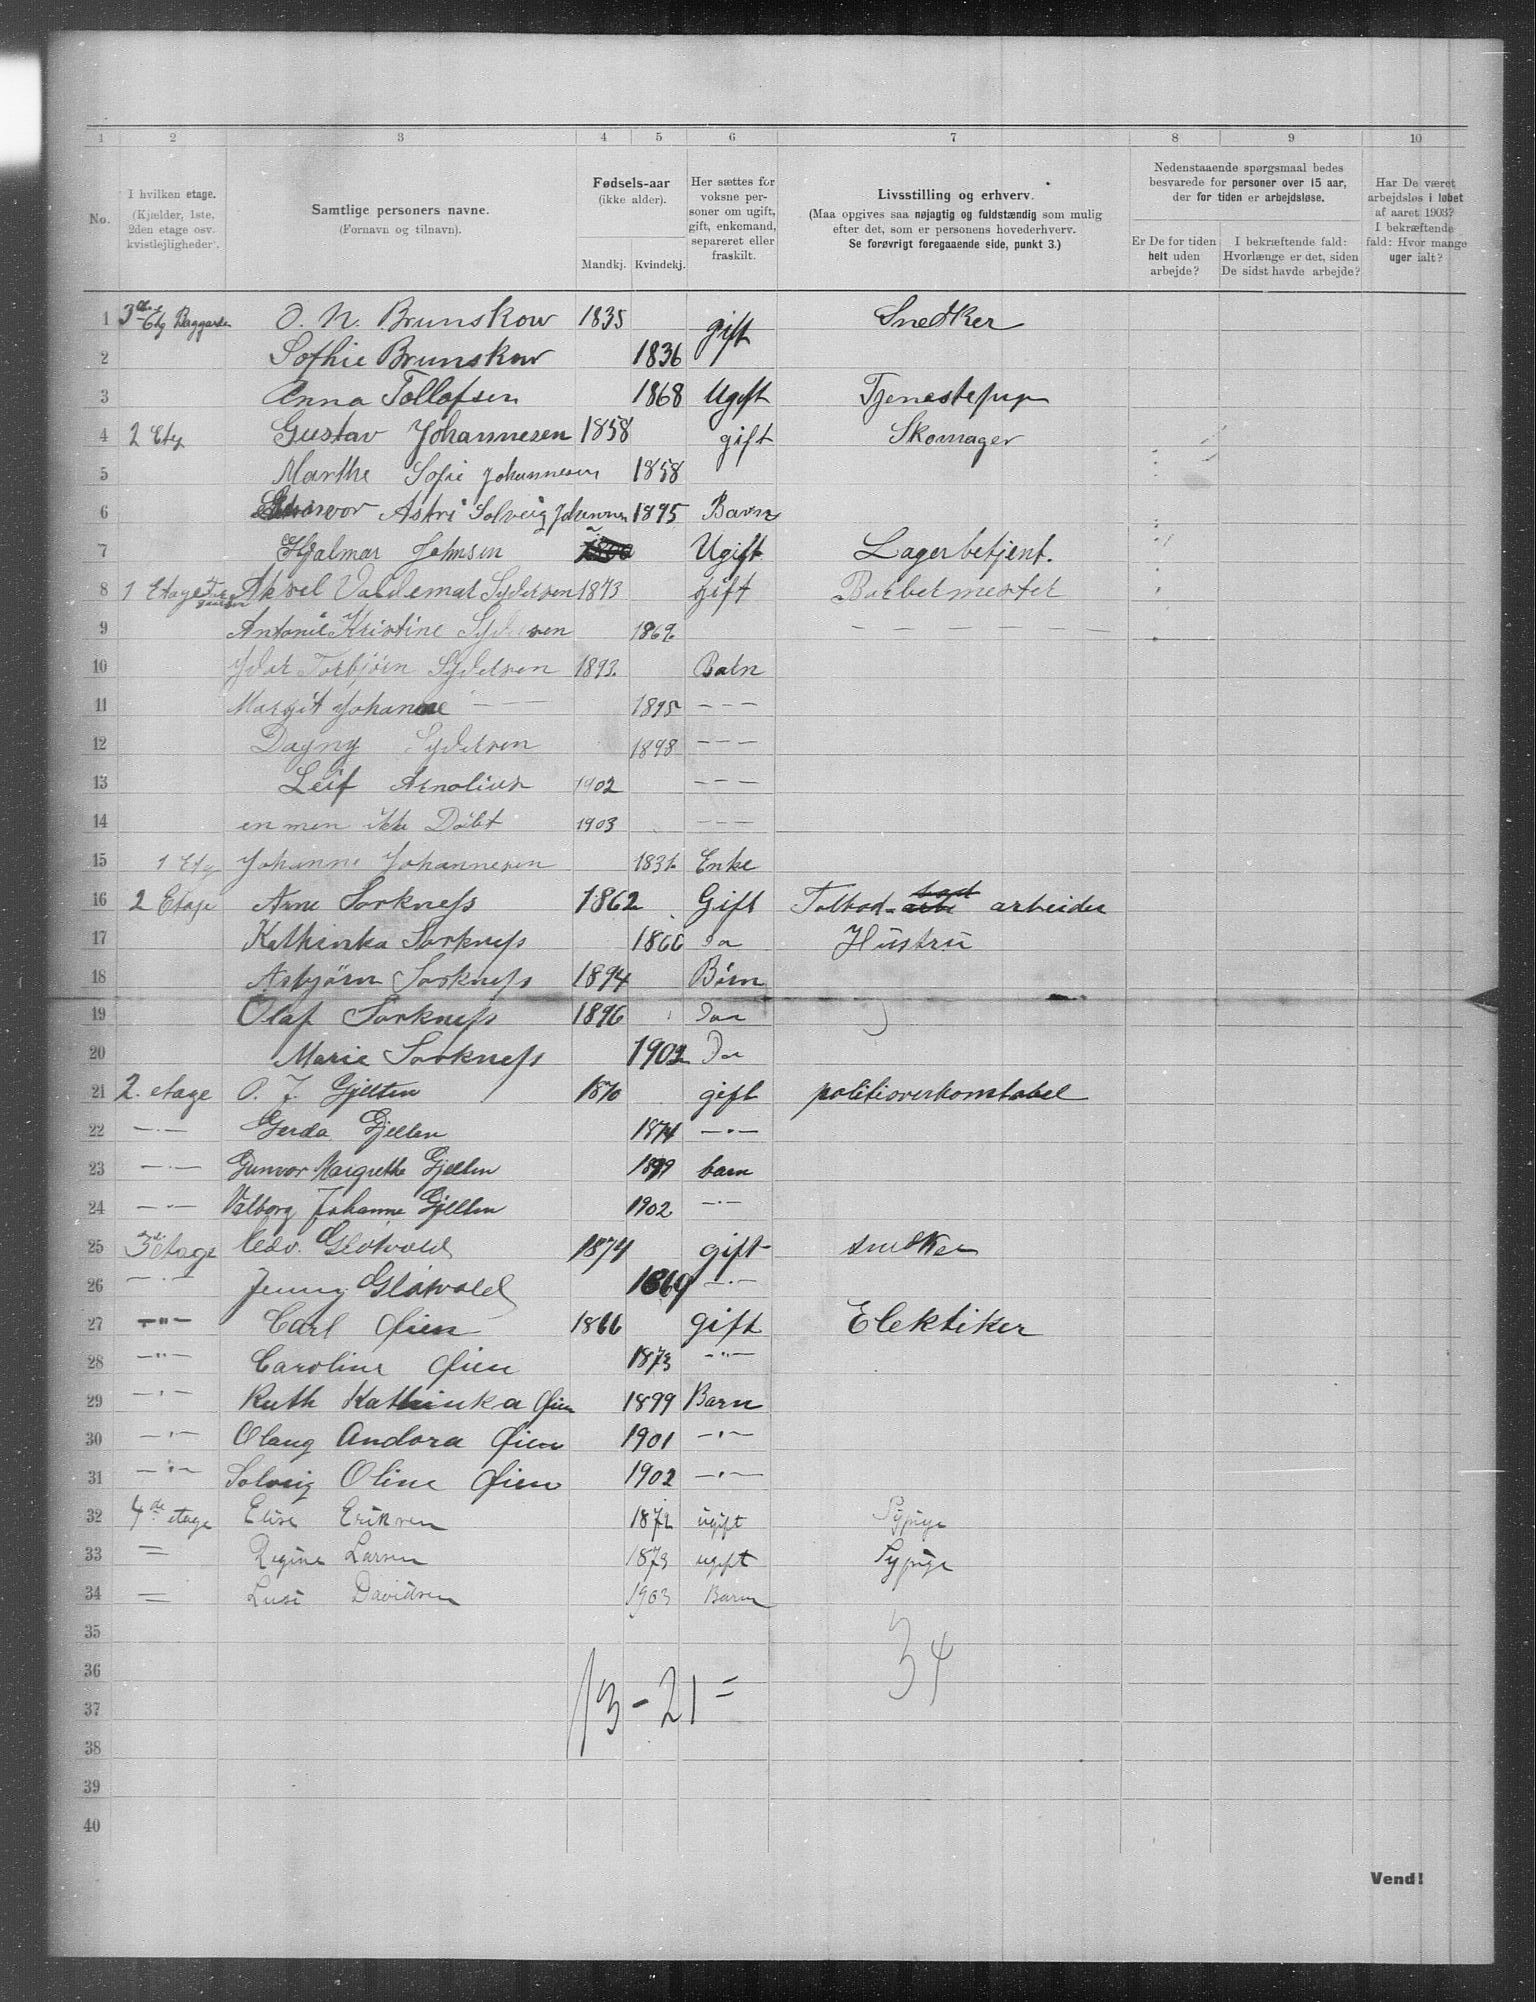 1 2 3 4 5 6 7 8 9 10
No.
I hvilken etage.
(Kjælder, 1ste, 2den etage osv. kvistlejligheder).
Samtlige personers navne.
(Fornavn og tilnavn).
Fødsels-aar
(ikke alder).
Mandkj. Kvindekj.
Her sættes for voksne personer om ugift, gift, enkemand, separeret eller fraskilt.
Livsstilling og erhverv.
(Maa opgives saa nøjagtig og fuldstændig som mulig
efter det, som er personens hovederhverv.
Se forøvrigt foregaaende side, punkt 3.)
Nedenstaaende spørgsmaal bedes
besvarede for personer over 15 aar,
der for tiden er arbejdsløse.
Er De for tiden helt uden arbejde?
I bekræftende fald: Hvorlænge er det, siden De sidst havde arbejde?
Har De været arbejdsløs i løbet af aaret 1903? I bekræftende fald: Hvor mange uger ialt?
1 3die Etg Baggarden O. N. Brunskow 1835 gift Snedker
2 Sofhie Brunskow 1836
3 Anna Tollofsen 1868 Ugift Tjenestepige
4 2 Etg Gustav Johannesen 1858 gift Skomager
5 Marthe Sofie Johannesen 1858
6 Astri Solveig Johannesen 1895 Barn
7 Hjalmar Johnsen Ugift Lagerbetjent.
8 1 Etage Aksel Valdemar Sydersen 1873 gift Barbermester
9 Antonie Kristine Sydersen 1869 — — — — — —
10 Torbjørn Sydersen 1893 Barn
11 Margit Johanne — — 1895 — — —
12 Dagny Sydersen 1898 — — —
13 Leif Arnolius 1902 — — —
14 en men ikke Døbt 1903 — — —
15 1 Etg Johanne Johannesen 1831 Enke
16 2 Etage Arne Sorkness 1862 Gift Tolbod- arbeider
17 Kathinka Sorkness 1866 Do Hustru
18 Asbjørn Sorkness 1894 Børn
19 Olaf Sorkness 1896 Do
20 Marie Sorkness 1902 Do
21 2. etage O. J. Gjelten 1870 gift politioverkonstabel
22 —·— Gerda Gjelten 1874 —·—
23 —·— Gunvor Margrethe Gjelten 1899 barn
24 —·— Valborg Johanne Gjelten 1902 —·—
25 3die etage Edv. Gløtvold 1874 gift snedker
26 —·— Jenny Gløtvold 1869 —·—
27 —"— Carl Øien 1866 gift Elektiker
28 —"— Caroline Øien 1873 —"—
29 —·— Ruth Kathinka Øien 1899 Barn
30 —·— Olaug Andora Øien 1901 —·—
31 —·— Solveig Oline Øien 1902 —·—
32 4de etage Elise Eriksen 1872 ugift Sypige
33 = Regine Larsen 1873 ugift Sypige
34 = Lusi Davidsen 1903 Barn
35
36
37
38
39
40
13 - 21 =
34
Vend!